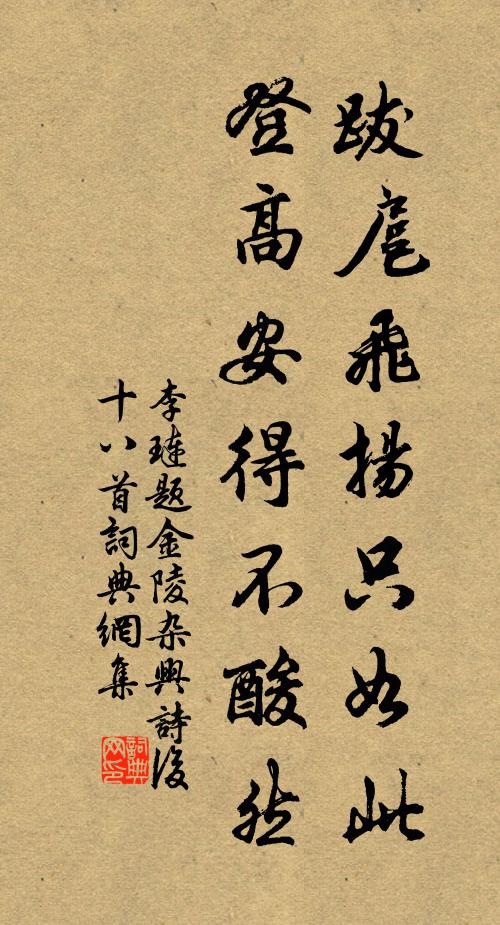 跋扈飛揚只如此
登高安得不酸然
李璉題金陵杂興詩後
十八首詞典網集
詞典
网印